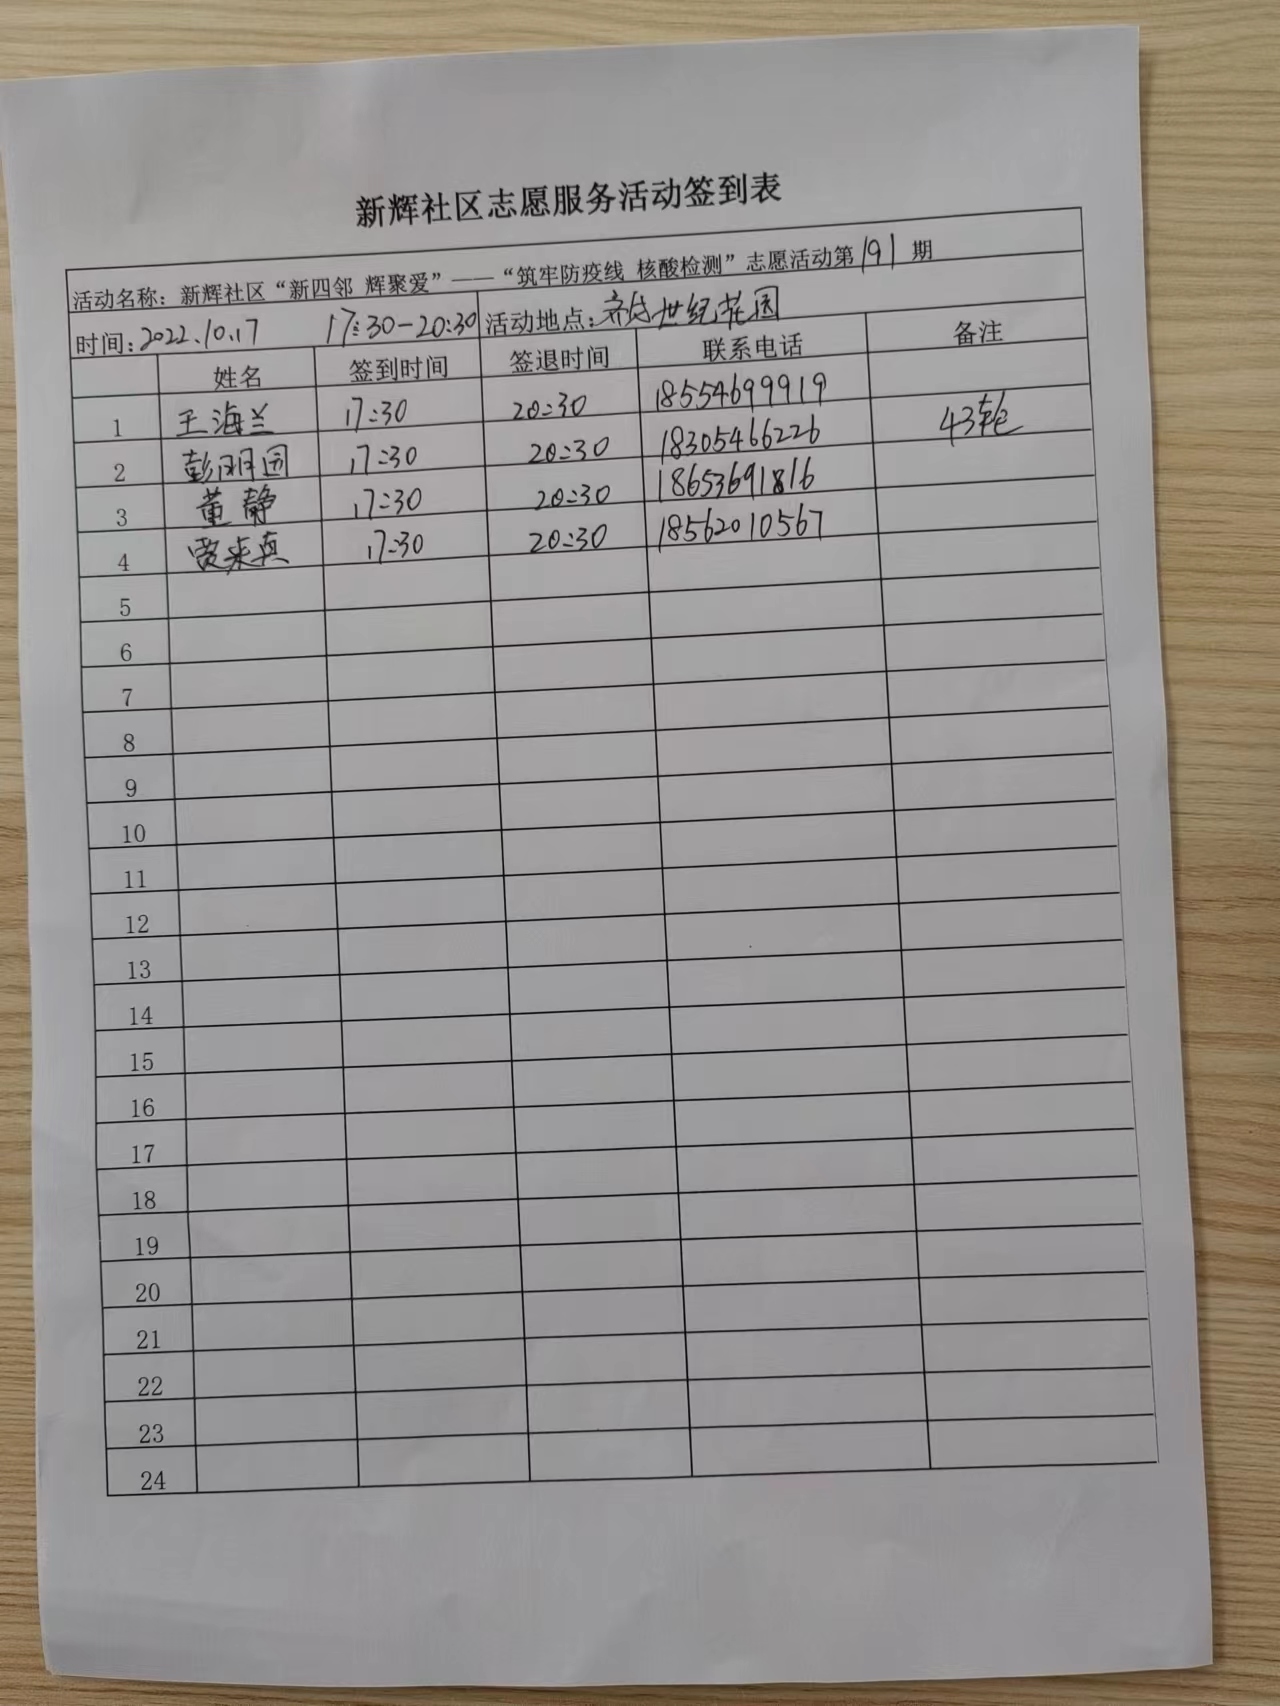 新辉社区志愿服务活动签到表
活动名称：新辉社区“新四邻 辉聚爱”——“筑牢防疫线 核酸检测”志愿活动第191期
时间：2022.10.17 17:30-20:30 活动地点：世纪花园
姓名 签到时间 签退时间 联系电话 备注
1 王海兰 17:30 20:30 18554699919
2 彭丽园 17:30 20:30 18305466226 43轮
3 董静 17:30 20:30 18653691816
4 贾来真 17:30 20:30 18562010567
5
6
7
8
9
10
11
12
13
14
15
16
17
18
19
20
21
22
23
24